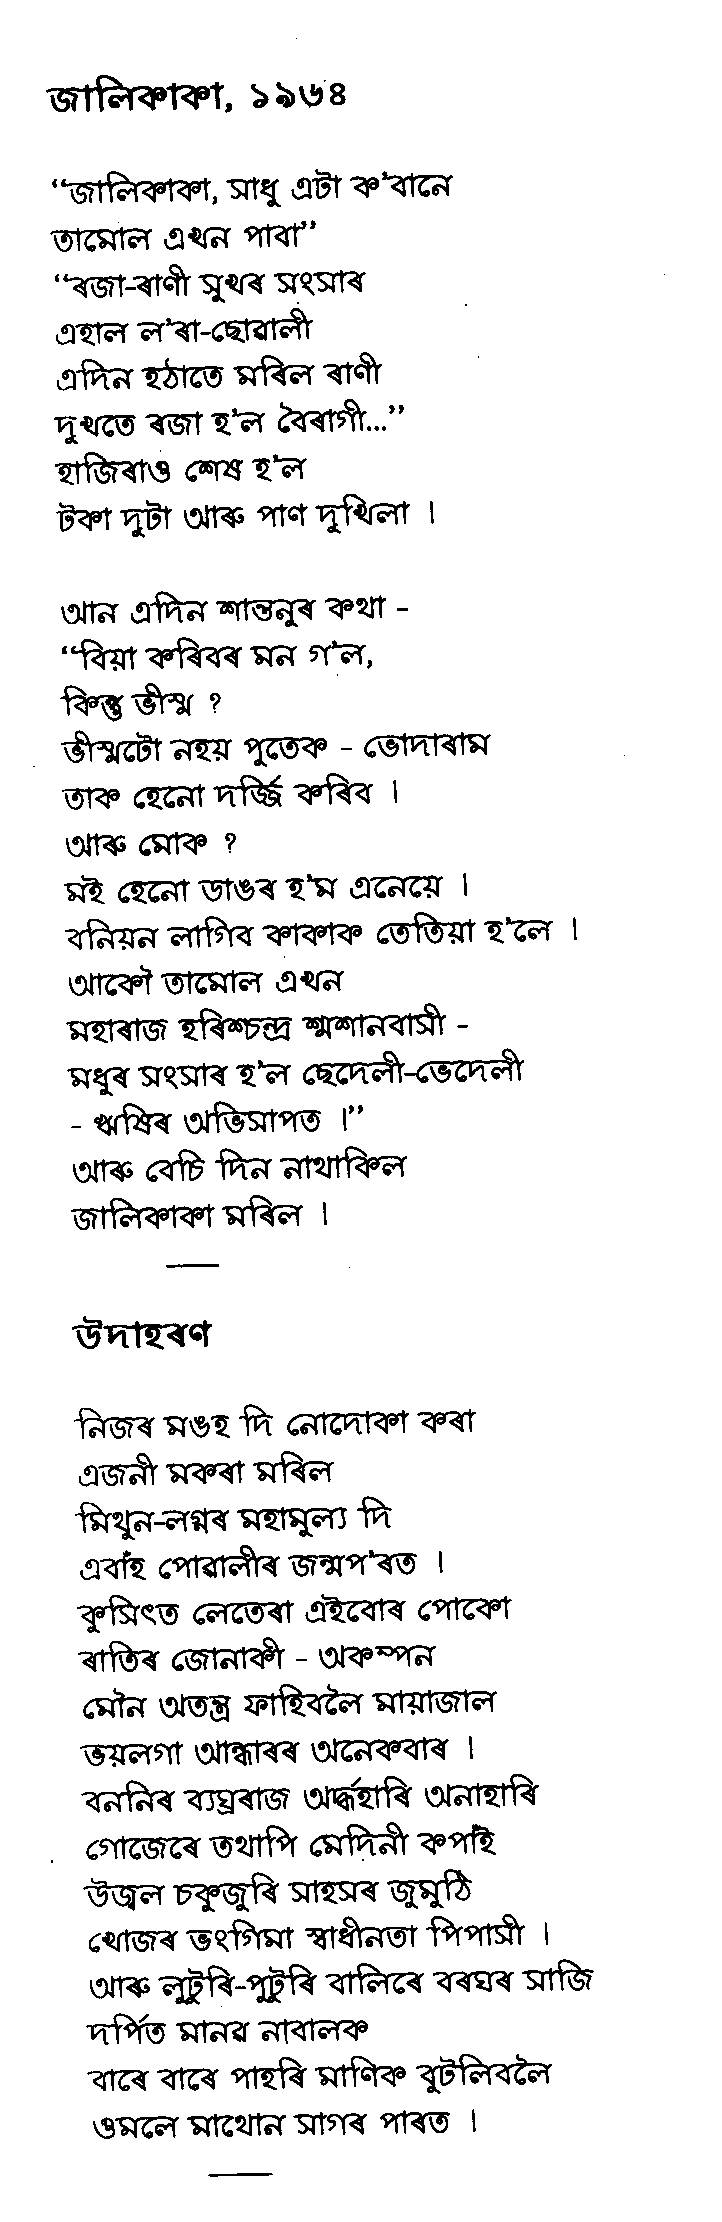 জালিকাকা, ১৯৬৪
“জালিকাকা, সাধু এটা ক'বানে
তামোল এখন পাবা”
“ৰজা-ৰাণী সুখৰ সংসাৰ
এহাল ল'ৰা-ছোৱালী
এদিন হঠাতে মৰিল ৰাণী
দুখতে ৰজা হ'ল বৈৰাগী...”
হাজিৰাও শেষ হ'ল
টকা দুটা আৰু পাণ দুখিলা ।
আন এদিন শান্তনুৰ কথা -
“বিয়া কৰিবৰ মন গ'ল,
কিন্তু ভীস্ম ?
ভীস্মটো নহয় পুতেক - ভোদাৰাম
তাক হেনো দৰ্জ্জি কৰিব ।
আৰু মোক ?
মই হেনো ডাঙৰ হ'ম এনেয়ে ।
বনিয়ন লাগিব কাকাক তেতিয়া হ'লে ।
আকৌ তামোল এখন
মহাৰাজ হৰিশ্চন্দ্ৰ শ্মশানবাসী -
মধুৰ সংসাৰ হ'ল ছেদেলী-ভেদেলী
- ঋষিৰ অভিসাপত ।”
আৰু বেচি দিন নাথাকিল
জালিকাকা মৰিল ।
উদাহৰণ
নিজৰ মঙহ দি নোদোকা কৰা
এজনী মকৰা মৰিল
মিথুন-লগ্নৰ মহামুল্য দি
এবাঁহ পোৱালীৰ জন্মপ'ৰত ।
কুসিৎত লেতেৰা এইবোৰ পোকো
ৰাতিৰ জোনাকী - অকম্পন
মৌন অতন্ত্ৰ ফাহিবলৈ মায়াজাল
ভয়লগা আন্ধাৰৰ অনেকবাৰ ।
বননিৰ ব্যঘ্ৰৰাজ অৰ্দ্ধহাৰি অনাহাৰি
গোজেৰে তথাপি মেদিনী কপাঁই
উজ্বল চকুজুৰি সাহসৰ জুমুঠি
খোজৰ ভংগিমা স্বাধীনতা পিপাসী ।
আৰু লুটুৰি-পুটুৰি বালিৰে বৰঘৰ সাজি
দৰ্পিত মানৱ নাবালক
বাৰে বাৰে পাহৰি মাণিক বুটলিবলৈ
ওমলে মাথোন সাগৰ পাৰত ।